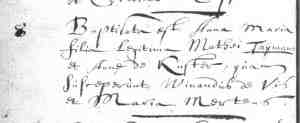 8 Baptisata est Anna Maria
filia legitima Mathei Taymans
et Annæ de Kuster, quam
susceperunt Winandus de Vis
et Maria Mertens